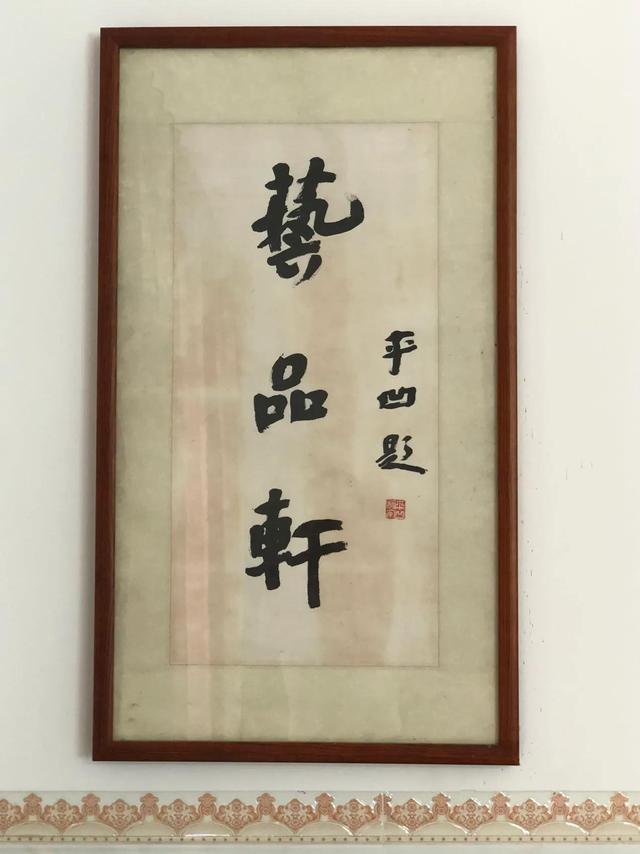 藝品軒
平凹題